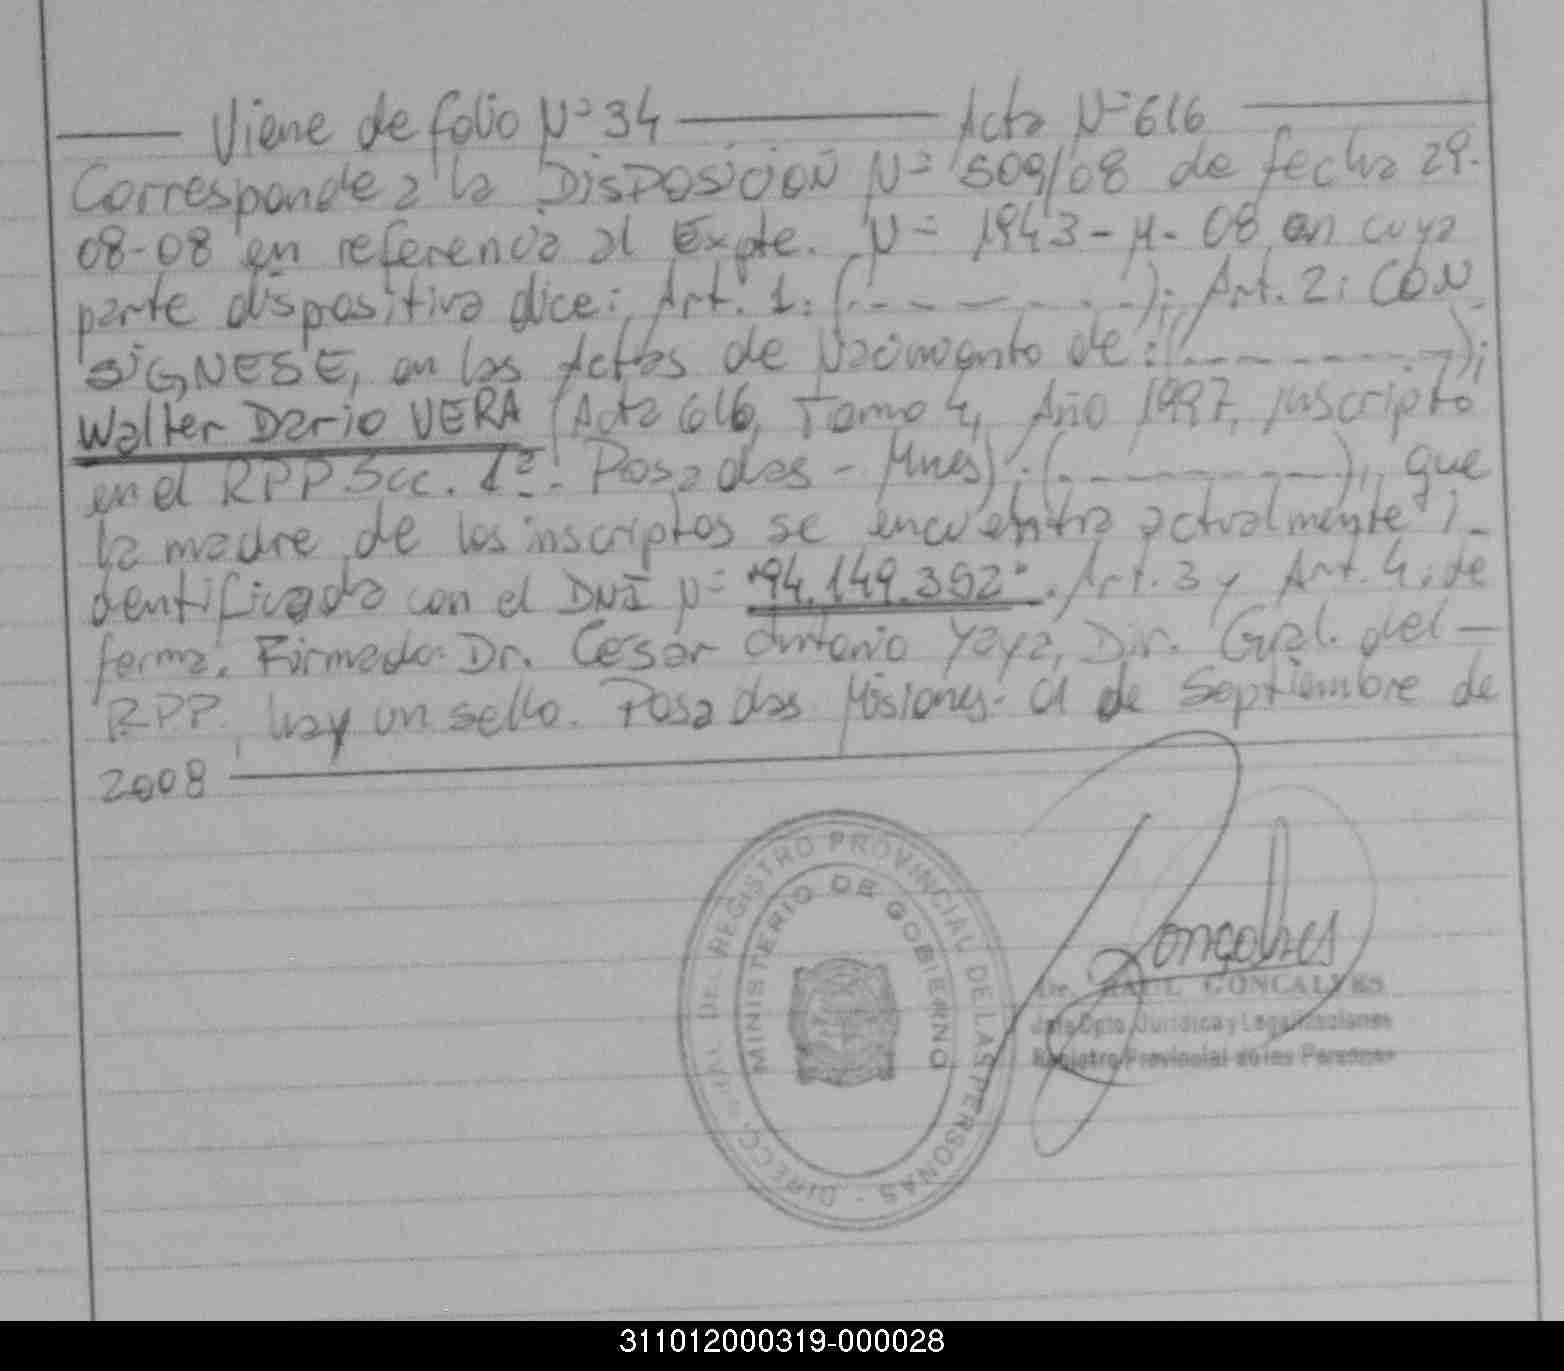 Viene de folio Nº 34 Acta Nº 616
Corresponde a la DisPosicioN Nº 509/08 de fecha 29-
08-08 en referencia al Expte. Nº 1943-M-08 en cuya
parte dispositiva dice: Art. 1: (- - - - - - -); Art. 2: CON
SIGNESE, en las Actas de Nacimiento de: (- - - - - - -);
Walter Dario VERA (Acta 616, Tomo 4, Año 1997, inscripto
en el RPP Scc. 1º. Posadas - Mnes); (- - - - - - -), que
la madre de los inscriptos se encuentra actualmente i-
dentificada con el DNI Nº "94.149.352". Art. 3 y Art. 4: de
forma. Firmado: Dr. Cesar Antonio Yaya, Dir. Gral. del
RPP, hay un sello. Posadas Misiones- 01 de Septiembre de
2008
DIRECC. GRAL. DEL REGISTRO PROVINCIAL DE LAS PERSONAS
MINISTERIO DE GOBIERNO
Goncalves
Dr. RAUL GONCALVES
Jefe Dpto. Jurídica y Legalizaciones
Registro Provincial de las Personas
311012000319-000028